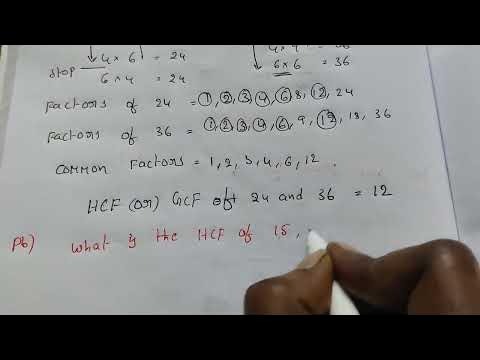 4 × 6 = 24
STOP
6 × 4 = 24
4 × 9
6 × 6 = 36
Factors of 24 = 1, 2, 3, 4, 6, 8, 12, 24
Factors of 36 = 1, 2, 3, 4, 6, 9, 12, 18, 36
Common Factors = 1, 2, 3, 4, 6, 12.
HCF (or) GCF of 24 and 36 = 12
Pb) What is the HCF of 15,